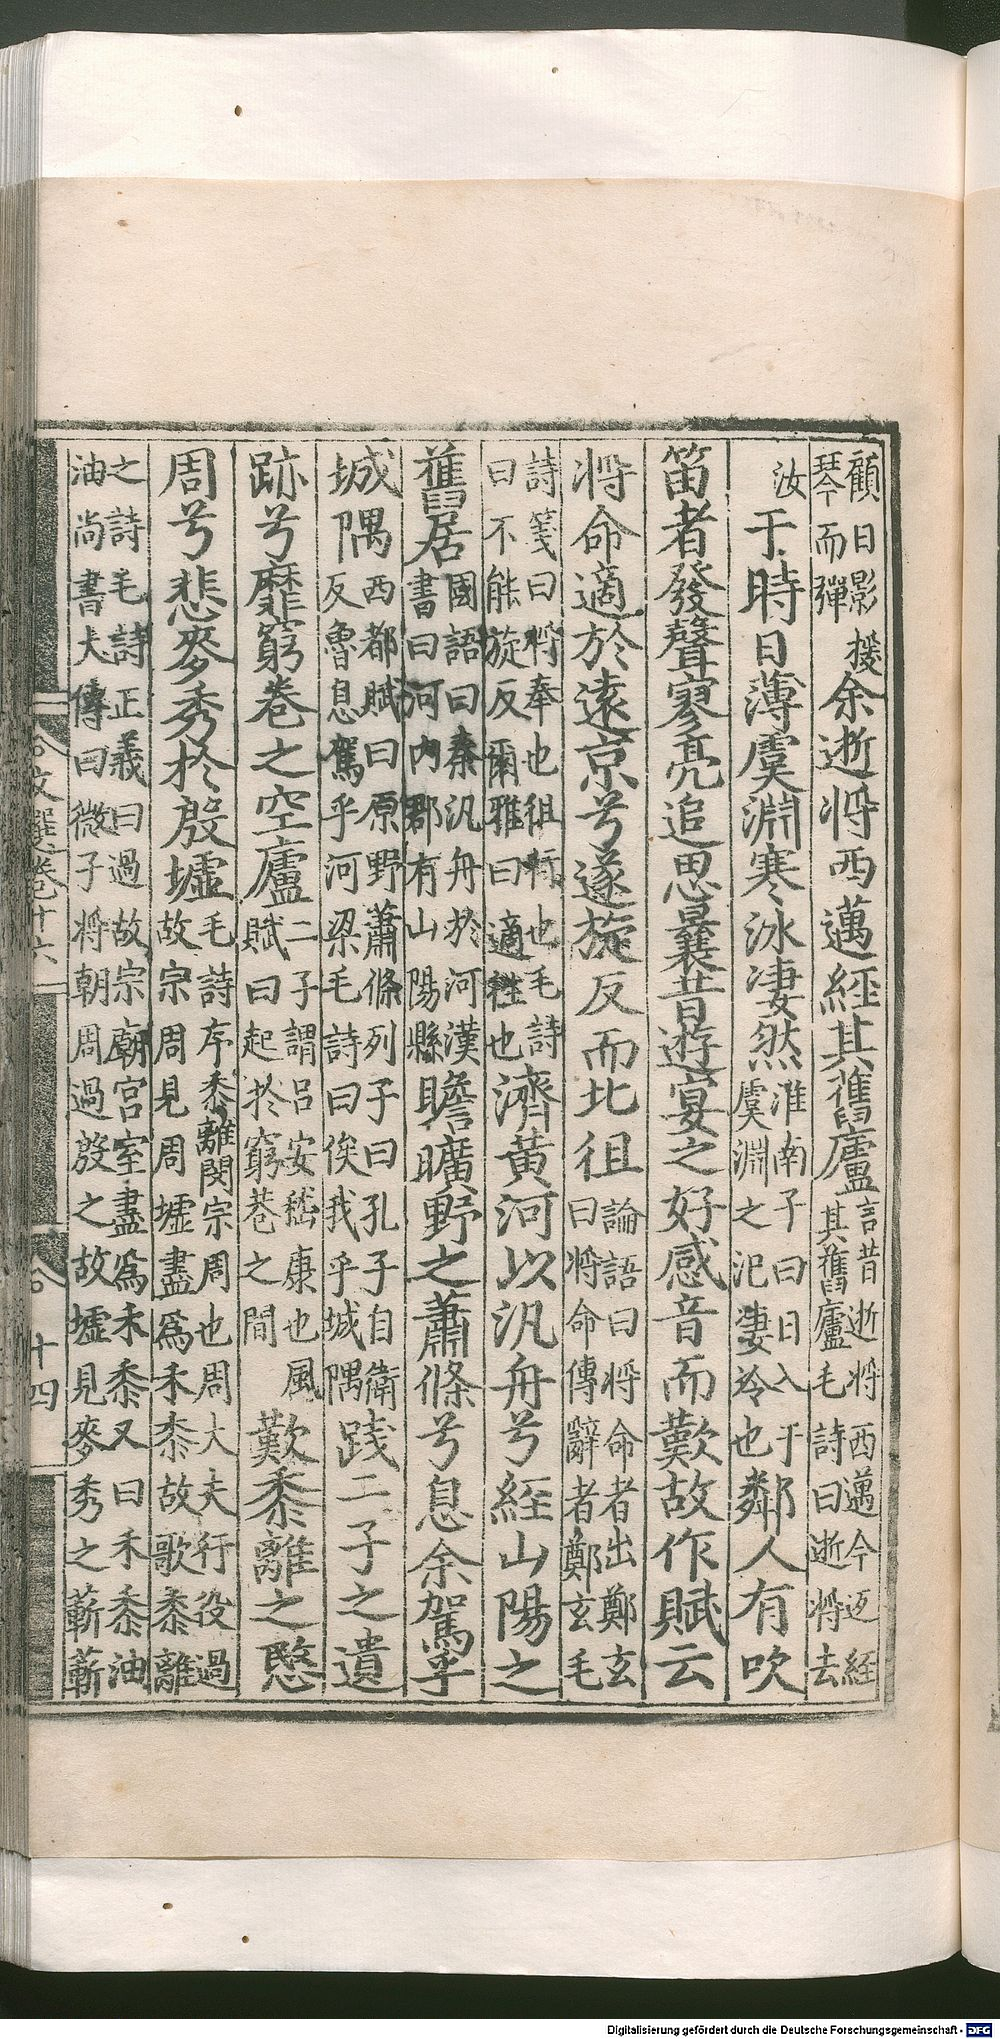 顧日影援
琴而彈
余逝將西邁經其舊廬
言昔逝將西邁今返經
其舊廬毛詩曰逝將去
汝
于時日薄虞淵寒冰凄然
淮南子曰日入于
虞淵之汜凄冷也
鄰人有吹
笛者發聲寥亮追思曩昔遊宴之好感音而歎故作賦云
將命適於遠京兮遂旋反而北徂
論語曰將命者出鄭玄
曰將命傳辭者鄭玄毛
詩箋曰將奉也徂行也毛詩
曰不能旋反爾雅曰適往也
濟黃河以汎舟兮經山陽之
舊居
國語曰秦汎舟於河漢
書曰河內郡有山陽縣
瞻曠野之蕭條兮息余駕乎
城隅
西都賦曰原野蕭條列子曰孔子自衛
反魯息駕乎河梁毛詩曰俟我乎城隅
踐二子之遺
跡兮歷窮巷之空廬
二子謂呂安嵇康也風
賦曰起於窮巷之間
歎黍離之愍
周兮悲麥秀於殷墟
毛詩序黍離閔宗周也周大夫行役過
故宗周見周墟盡爲禾黍故歌黍離
之詩毛詩正義曰過故宗廟宮室盡爲禾黍又曰禾黍油
油尚書大傳曰微子將朝周過殷之故墟見麥秀之蔪蔪
文選卷十六
十四
Digitalisierung gefördert durch die Deutsche Forschungsgemeinschaft - DFG